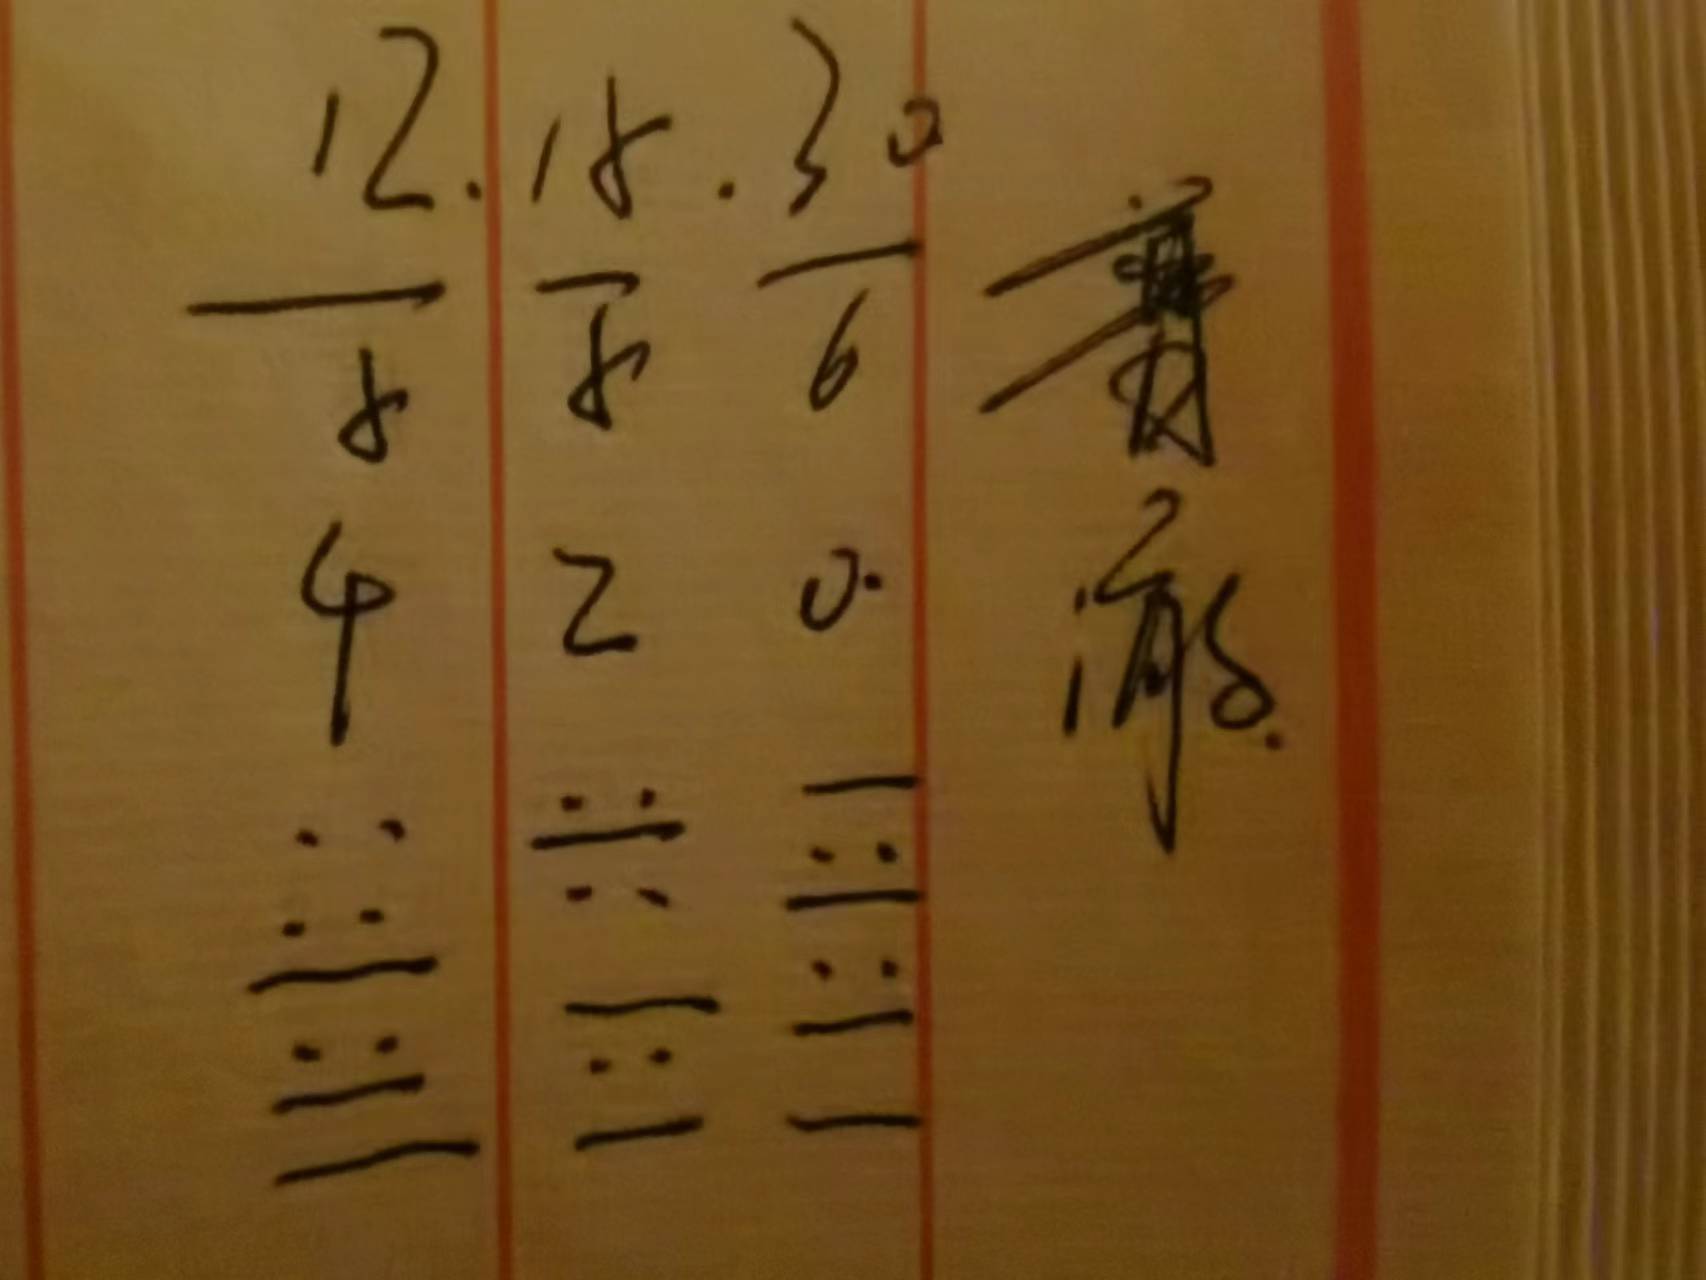 12.18.30
8 8 6
4 2 0.